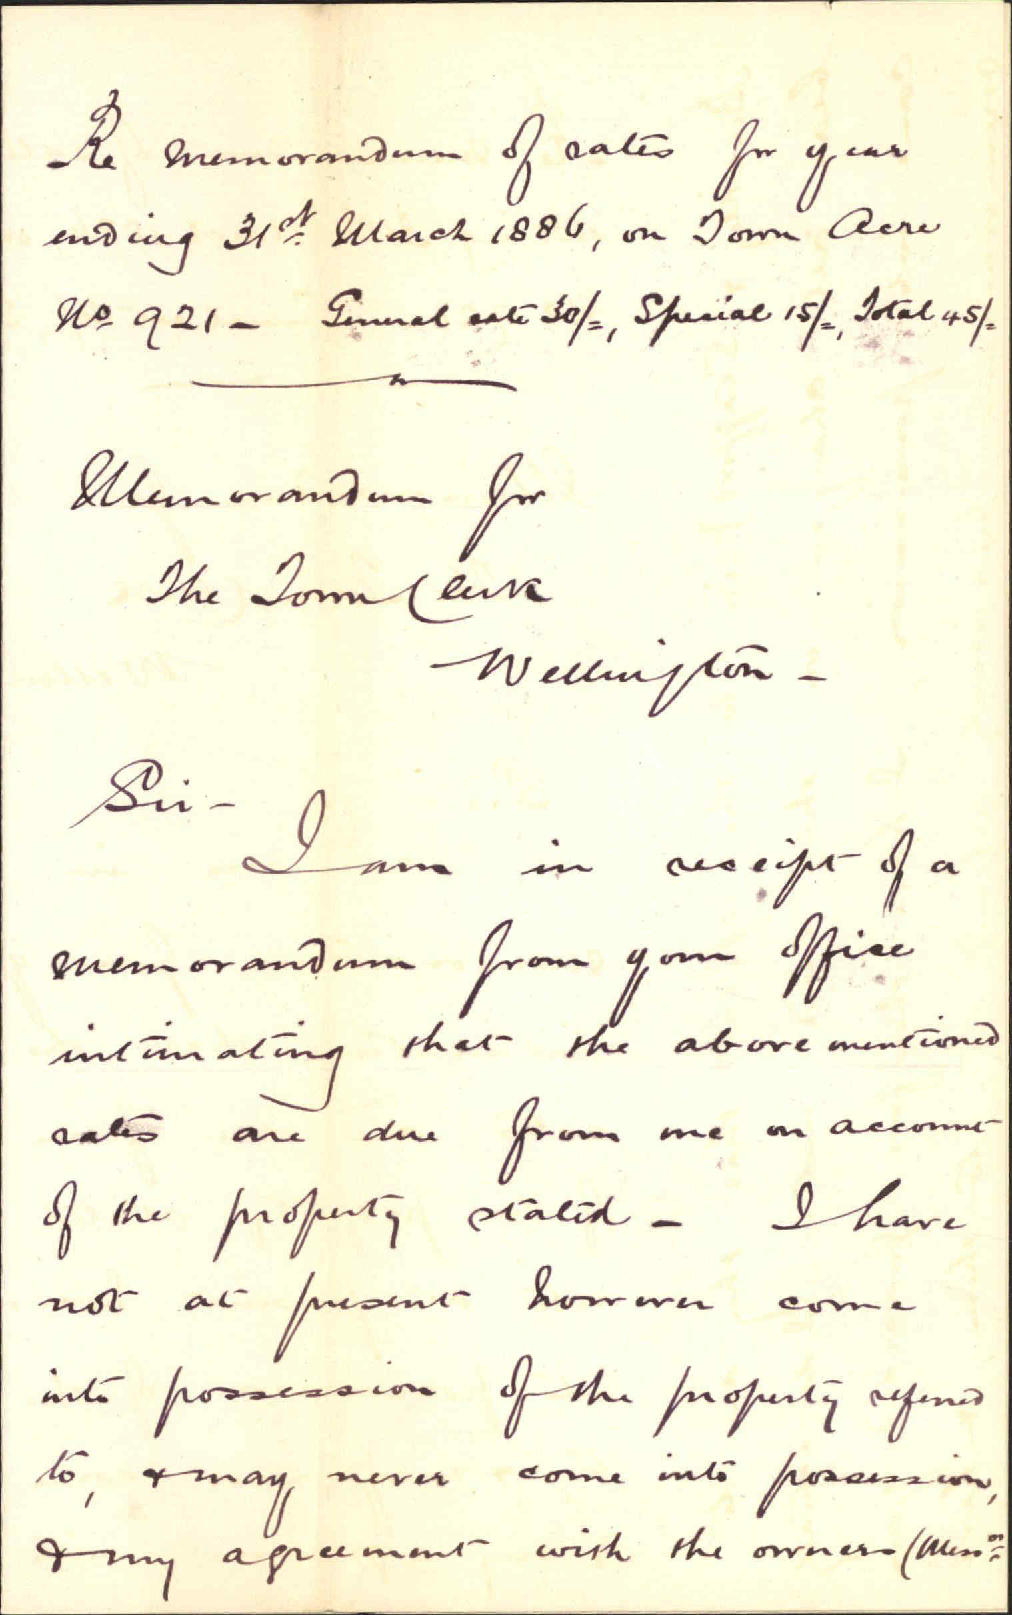 Re memorandum of rates for year
ending 31st March 1886, on Town Acre
No 921 - General rate 30/=, Special 15/=, Total 45/=
Memorandum for
The Town Clerk
Wellington -
Sir -
I am in receipt of a
memorandum from your office
intimating that the above mentioned
rates are due from me on account
of the property stated - I have
not at present however come
into possession of the property referred
to, & may never come into possession,
& my agreement with the owners (Messrs